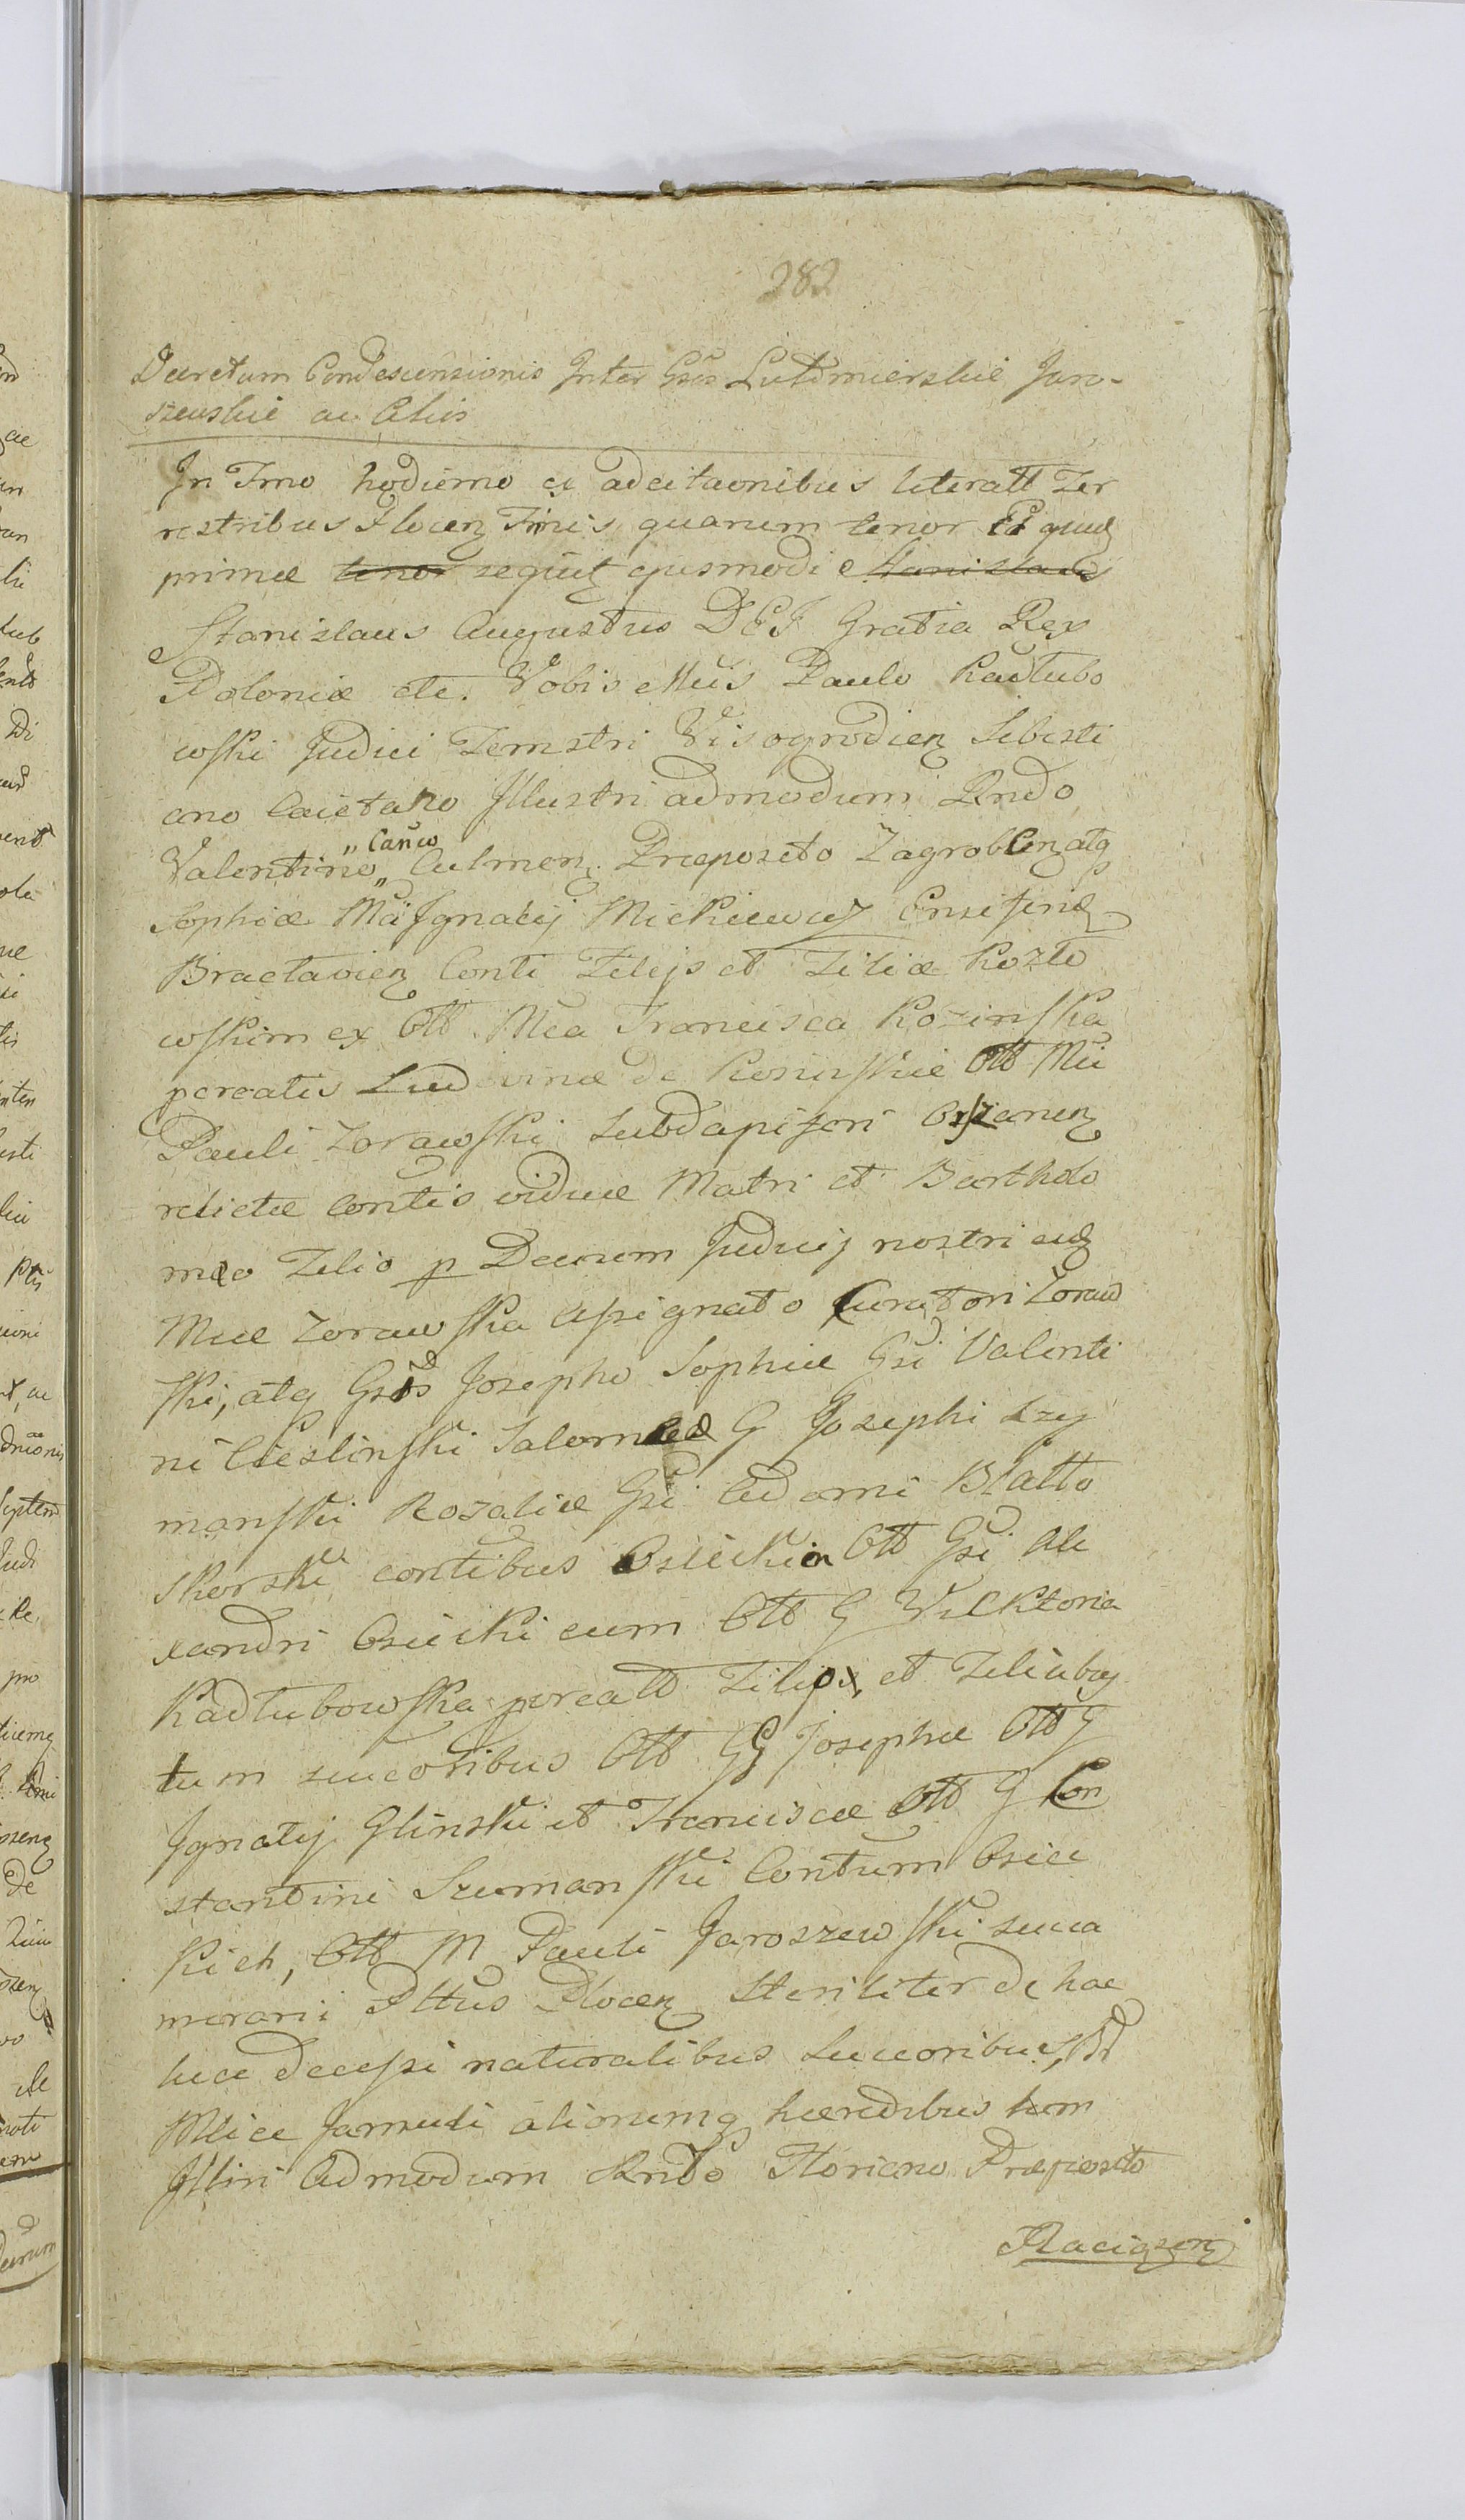 282
Decretum Condescensionis Inter Gsos Lutomierskie Jaro-
szewskie ac Alios
In Tmo hodierno ex adcitaonibus literall Ter
restribus Plocen Tmis quarum tenor Et quid
primae tenor sequit ejusmodi Stanislaus
Stanislaus Augustus DEI Gratia Rex
Poloniae etc. Vobis Mcis Paulo Kadlubo
wski Judici Terrestri Visogrodien Sebesti
ano Caietano Illustri admodum Rndo
Valentino „Canco„ Culmen Praeposito Zagroblen atq
Sophiae Mci Ignatij Mickiewicz Ensiferid
Braclavien Conti Filijs et Filiae Kozlo
wskim ex Olt. Mca Francisca Kozinska
pcreatis Ludovinae de Kosinskie Olt Mci
Pauli Zorawski Subdapiferi Orszanen
relictae contis viduae Matri et Bartholo
meo Filio p Decrum Judicij nostri eid
Mcae Zorawska Assignato Curatori Zoraw
ski, atq Gsis Josepho Sophiae Gsi Valenti
ni Cieslinski Salomeae G Josephi Szy
manski Rozaliae Gsi Adami Blatto
Skorski contibus Osieckim Olt Gsi Ale
xandri Osiecki cum Olt G Wicktoria
Kadlubowska pcreatt Filijs, et Filiabus
tum succoribus Olt GG Josephae Olt G
Ignatij Glinski et Franciscae Olt G Con
stantini Szumanski Contum Osiec
kich, Olt M Pauli Jaroszewski succa
merarii Pttus Plocen Steriliter de hac
luce decessi naturalibus Succoribus,
Mcae Jamuli aliorumq haeredibus tum
Illtri Admodum Rndo Floriano Praeposito
Raciązen